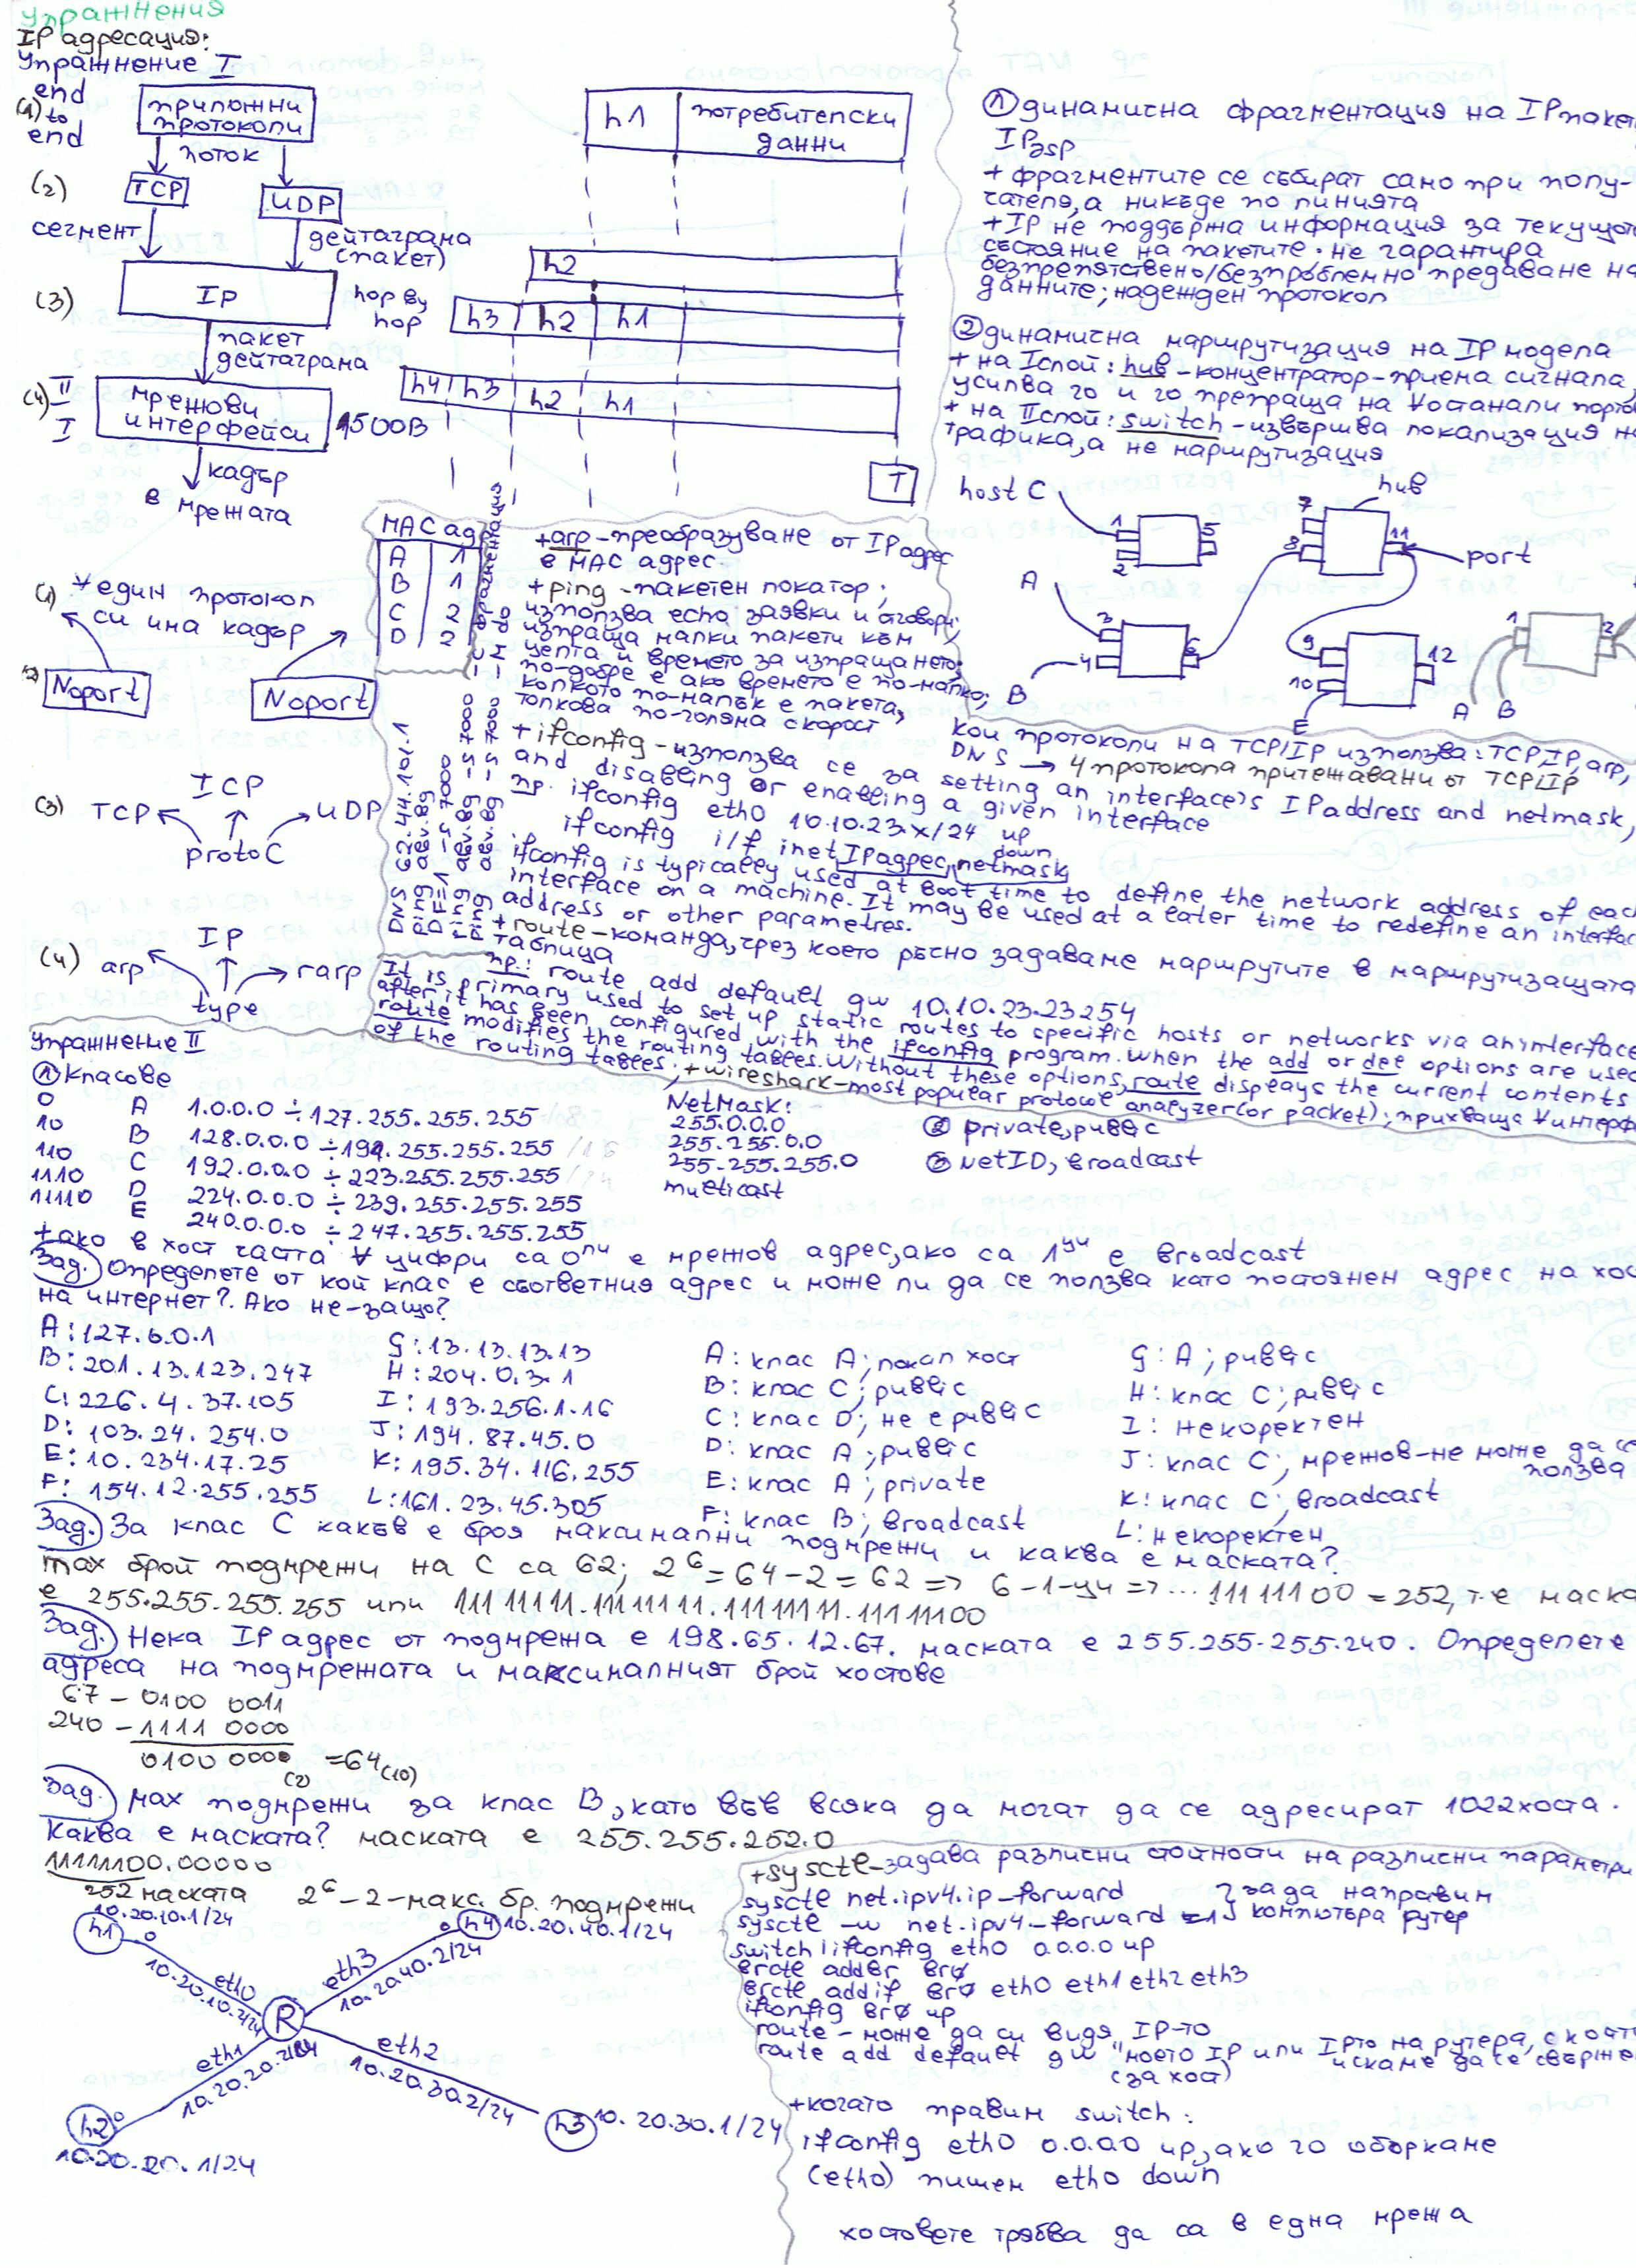 Упражнения
IP адресация:
Упражнение I
end
(1) to
end
приложни
протоколи
поток
(2)
TCP
UDP
сегмент
дейтаграма
(пакет)
(3)
IP
hop by
hop
пакет
дейтаграма
(4) II
I
мрежови
интерфейси
1500B
кадър
в мрежата
h1
потребителски
данни
h2
h3 h2 h1
h4 h3 h2 h1
T
(1) ∀ един протокол
си има кадър
Noport
Noport
(3)
ICP
TCP
UDP
protoC
(4)
IP
arp
rarp
type
MAC ад
A 1
B 1
C 2
D 2
фрагментация
DNS 62.44.101.1
+arp-преобразуване от IP адрес
в MAC адрес
+ping-пакетен локатор;
използва echo заявки и отговори;
изпраща малки пакети към
целта и времето за изпращането;
по-добре е ако времето е по-малко;
колкото по-малък е пакета,
толкова по-голяма скорост
+ifconfig-използва се за setting an interface's IP address and netmask,
and disabling or enabling a given interface
пр. ifconfig eth0 10.10.23.x/24 up
ifconfig i/f inet IPадрес, netmask
down
ifconfig is typically used at boot time to define the network address of each
interface on a machine. It may be used at a later time to redefine an interface
address or other parametres.
+route-команда, чрез което ръчно задаваме маршрутите в маршрутизащата
таблица
пр.: route add default gw 10.10.23.23254
It is primary used to set up static routes to specific hosts or networks via an interface
after it has been configured with the ifconfig program. When the add or del options are used
route modifies the routing tables. Without these options, route displays the current contents
of the routing tables.; +wireshark-most popular protocol analyzer(or packet); прихваща ∀ интерф
① динамична фрагментация на IP пакет
+ фрагментите се събират само при полу-
чателя, а никъде по линията
+ IP не поддържа информация за текущото
състояние на пакетите. не гарантира
безпрепятствено/безпроблемно предаване на
данните; надежден протокол
② динамична маршрутизация на IP модела
+ на I слой: hub - концентратор-приема сигнала,
усилва го и го препраща на ∀ останали порто
+ на II слой: switch - извършва локализация на
трафика, а не маршрутизация
host C
1
2
5
7
8
hub
11
port
A
3
4
6
B
9
10
12
E
1
2
A B
Кои протоколи на TCP/IP използва: TCP, IP, arp,
DNS → 4 протокола притежавани от TCP/IP
Упражнение II
① Класове
0 A 1.0.0.0 ÷ 127.255.255.255
10 B 128.0.0.0 ÷ 191.255.255.255 /16
110 C 192.0.0.0 ÷ 223.255.255.255 /24
1110 D 224.0.0.0 ÷ 239.255.255.255
11110 E 240.0.0.0 ÷ 247.255.255.255
NetMask:
255.0.0.0
255.255.0.0
255.255.255.0
multicast
② private, public
③ NetID, broadcast
+ако в хост частта ∀ цифри са 0ли е мрежов адрес, ако са 1ци е broadcast
Зад. Определете от кой клас е съответния адрес и може ли да се ползва като постоянен адрес на хос
на интернет?. Ако не-защо?
A: 127.6.0.1
B: 201.13.123.247
C: 226.4.37.105
D: 103.24.254.0
E: 10.234.17.25
F: 154.12.255.255
G: 13.13.13.13
H: 204.0.3.1
I: 193.256.1.16
J: 194.87.45.0
K: 195.34.116.255
L: 161.23.45.305
A: клас A; локал хост
B: клас C; public
C: клас D; не е public
D: клас A; public
E: клас A; private
F: клас B; broadcast
G: A; public
H: клас C; public
I: некоректен
J: клас C; мрежов-не може да се
ползва
K: клас C; broadcast
L: некоректен
Зад. За клас C какъв е броя максимални подмрежи и каква е маската?
max брой подмрежи на C са 62; 2^6 = 64-2 = 62 => 6-1-ци => ...11111100 = 252, т.е маска
е 255.255.255.255 или 11111111.11111111.11111111.11111100
Зад. Нека IP адрес от подмрежа е 198.65.12.67. маската е 255.255.255.240. Определете
адреса на подмрежата и максималният брой хостове
67 - 0100 0011
240 - 1111 0000
0100 0000(2) = 64(10)
Зад. Max подмрежи за клас B, като във всяка да могат да се адресират 1022 хоста.
Каква е маската? маската е 255.255.252.0
11111100.00000
252 маската 2^6-2-макс. бр. подмрежи
h1 10.20.10.1/24
eth0
10.20.10.2/24
h4 10.20.40.1/24
eth3
10.20.40.2/24
R
eth1
10.20.20.2/24
eth2
10.20.30.2/24
h2
10.20.20.1/24
h3 10.20.30.1/24
+sysctl-задава различни стойности на различни параметри
sysctl net.ipv4.ip_forward
sysctl -w net.ipv4_forward =1
за да направим
компютъра рутер
switch | ifconfig eth0 0.0.0.0 up
brctl addbr br0
brctl addif br0 eth0 eth1 eth2 eth3
ifconfig br0 up
route - може да си видя IP-то
route add default gw "моето IP или IPто на рутера, с който
искаме да се свържем
(за хост)
+когато правим switch:
ifconfig eth0 0.0.0.0 up, ако го объркаме
(eth0) пишем eth0 down
хостовете трябва да са в една мрежа